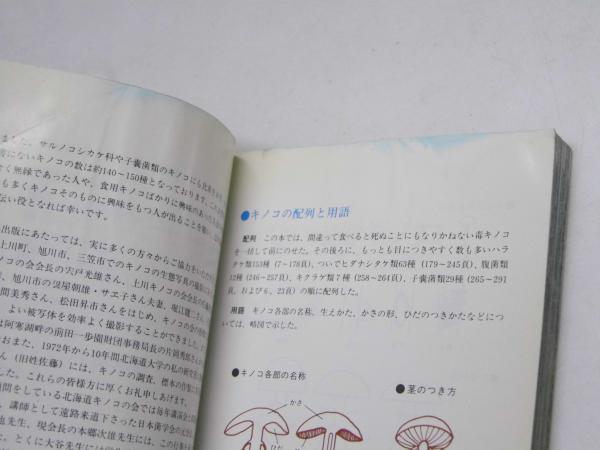 ました。サルノコシカケ科や子嚢菌類のキノコにも北
にないキノコの数は約140〜150種となっております。
く無縁であった人や、食用キノコばかりに興味のあった
も多くキノコそのものに興味をもつ人が出ることを願い
伝い役となれば幸いです。
出版にあたっては、実に多くの方々からご協力をいただ
上川町、旭川市、三笠市でのキノコの生態写真の
ノコの会会長の宍戸光雄さん、上川キノコの会
、旭川市の只屋朝雄・サエ子さん夫妻、堀江健二
間美秀さん、松田昇市さんをはじめ、キノコの会の
、よい被写体を効率よく撮影することができました。
は阿寒湖畔の前田一歩園財団事務局長の片岡秀郎さん
おまた、1972年から10年間北海道大学の私の研究
ん（旧姓佐藤）には、キノコの調査、標本の作製に
した。これらの皆様方に厚くお礼申しあげます。
問をしている北海道キノコの会では毎年講演会
、講師として遠路来道下さった日本菌学会の元会
也先生、現会長の本郷次雄先生には、この行事
た。とくに大谷先生には
●キノコの配列と用語
配列 この本では、間違って食べると死ぬことにもなりかねない毒キノコ
を一括して前にのせた。その後ろに、もっとも目につきやすく数も多いハラ
タケ類353種（7〜178頁）、ついでヒダナシタケ類63種（179〜245頁）、腹菌類
12種（246〜257頁）、キクラゲ類7種（258〜264頁）、子嚢菌類29種（265〜291
頁、および6、23頁）の順に配列した。
用語 キノコ各部の名称、生えかた、かさの形、ひだのつきかたなどにつ
いては、略図で示した。
●キノコ各部の名称
●茎のつき方
かさ
ひだ